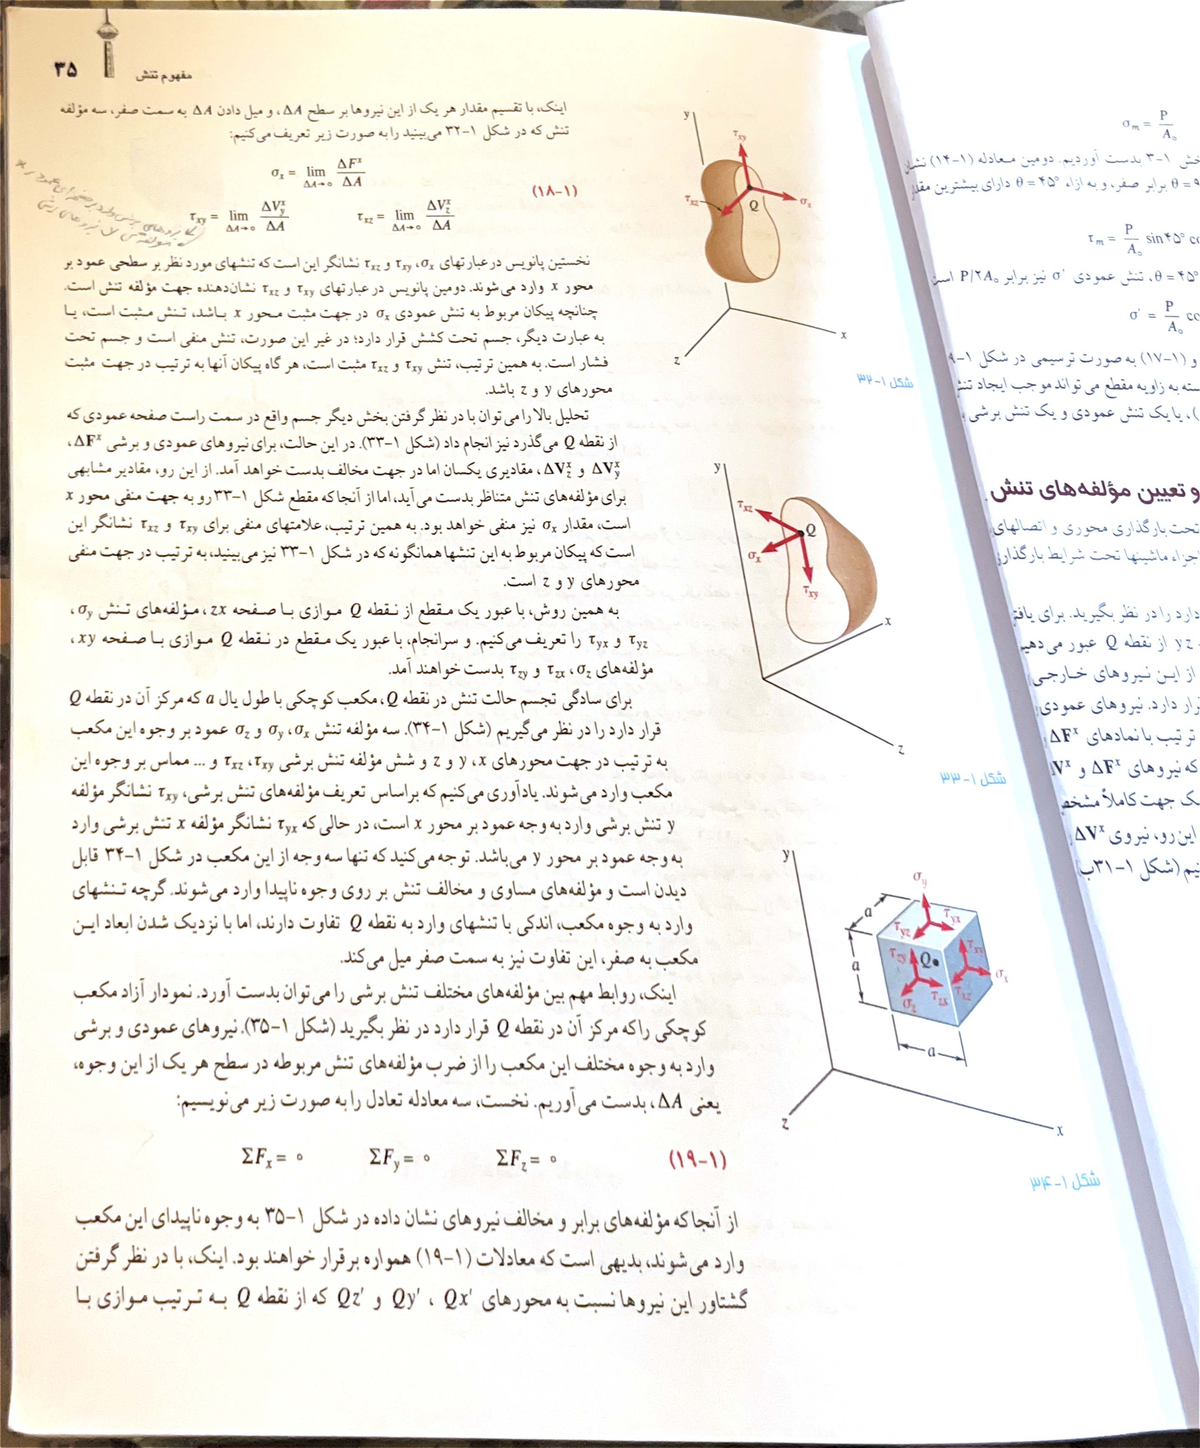 ۳۵
مفهوم تنش
اینک، با تقسیم مقدار هر یک از این نیروها بر سطح ΔA، و میل دادن ΔA به سمت صفر، سه مؤلفه
تنش که در شکل ۱-۳۲ می‌بینید را به صورت زیر تعریف می‌کنیم:
σx = lim ΔA→۰ ΔF^x / ΔA
(۱-۱۸)
τxy = lim ΔA→۰ ΔV^x_y / ΔA τxz = lim ΔA→۰ ΔV^x_z / ΔA
نخستین پانویس در عبارتهای σx، τxy و τxz نشانگر این است که تنشهای مورد نظر بر سطحی عمود بر
محور x وارد می‌شوند. دومین پانویس در عبارتهای τxy و τxz نشان‌دهنده جهت مؤلفه تنش است.
چنانچه پیکان مربوط به تنش عمودی σx در جهت مثبت محور x باشد، تنش مثبت است، یا
به عبارت دیگر، جسم تحت کشش قرار دارد؛ در غیر این صورت، تنش منفی است و جسم تحت
فشار است. به همین ترتیب، تنش τxy و τxz مثبت است، هر گاه پیکان آنها به ترتیب در جهت مثبت
محورهای y و z باشد.
تحلیل بالا را می‌توان با در نظر گرفتن بخش دیگر جسم واقع در سمت راست صفحه عمودی که
از نقطه Q می‌گذرد نیز انجام داد (شکل ۱-۳۳). در این حالت، برای نیروهای عمودی و برشی ΔF^x،
ΔV^x_y و ΔV^x_z، مقادیری یکسان اما در جهت مخالف بدست خواهد آمد. از این رو، مقادیر مشابهی
برای مؤلفه‌های تنش متناظر بدست می‌آید، اما از آنجا که مقطع شکل ۱-۳۳ رو به جهت منفی محور x
است، مقدار σx نیز منفی خواهد بود. به همین ترتیب، علامتهای منفی برای τxy و τxz نشانگر این
است که پیکان مربوط به این تنشها همانگونه که در شکل ۱-۳۳ نیز می‌بینید، به ترتیب در جهت منفی
محورهای y و z است.
به همین روش، با عبور یک مقطع از نقطه Q موازی با صفحه zx، مؤلفه‌های تنش σy،
τyz و τyx را تعریف می‌کنیم. و سرانجام، با عبور یک مقطع در نقطه Q موازی با صفحه xy،
مؤلفه‌های σz، τzx و τzy بدست خواهند آمد.
برای سادگی تجسم حالت تنش در نقطه Q، مکعب کوچکی با طول یال a که مرکز آن در نقطه Q
قرار دارد را در نظر می‌گیریم (شکل ۱-۳۴). سه مؤلفه تنش σx، σy و σz عمود بر وجوه این مکعب
به ترتیب در جهت محورهای x، y و z و شش مؤلفه تنش برشی τxy، τxz و ... مماس بر وجوه این
مکعب وارد می‌شوند. یادآوری می‌کنیم که براساس تعریف مؤلفه‌های تنش برشی، τxy نشانگر مؤلفه
y تنش برشی وارد به وجه عمود بر محور x است، در حالی که τyx نشانگر مؤلفه x تنش برشی وارد
به وجه عمود بر محور y می‌باشد. توجه می‌کنید که تنها سه وجه از این مکعب در شکل ۱-۳۴ قابل
دیدن است و مؤلفه‌های مساوی و مخالف تنش بر روی وجوه ناپیدا وارد می‌شوند. گرچه تنشهای
وارد به وجوه مکعب، اندکی با تنشهای وارد به نقطه Q تفاوت دارند، اما با نزدیک شدن ابعاد این
مکعب به صفر، این تفاوت نیز به سمت صفر میل می‌کند.
اینک، روابط مهم بین مؤلفه‌های مختلف تنش برشی را می‌توان بدست آورد. نمودار آزاد مکعب
کوچکی را که مرکز آن در نقطه Q قرار دارد در نظر بگیرید (شکل ۱-۳۵). نیروهای عمودی و برشی
وارد به وجوه مختلف این مکعب را از ضرب مؤلفه‌های تنش مربوطه در سطح هر یک از این وجوه،
یعنی ΔA، بدست می‌آوریم. نخست، سه معادله تعادل را به صورت زیر می‌نویسیم:
ΣFx = ۰ ΣFy = ۰ ΣFz = ۰ (۱-۱۹)
از آنجا که مؤلفه‌های برابر و مخالف نیروهای نشان داده در شکل ۱-۳۵ به وجوه ناپیدای این مکعب
وارد می‌شوند، بدیهی است که معادلات (۱-۱۹) همواره برقرار خواهند بود. اینک، با در نظر گرفتن
گشتاور این نیروها نسبت به محورهای Qx′، Qy′ و Qz′ که از نقطه Q به ترتیب موازی با
y
τxy
τxz
Q
σx
x
z
شکل ۱-۳۲
y
τxz
Q
σx
τxy
x
z
شکل ۱-۳۳
y
σy
a
τyx
τyz
τxy
τzy
Q
a
σx
τxz
σz
τzx
a
z
x
شکل ۱-۳۴
σm = P / A۰
بخش ۱-۳ بدست آوردیم. دومین معادله (۱-۱۴) نشان
برابر صفر، و به ازاء θ = ۴۵° دارای بیشترین مقدار
τm = P / A۰ sin ۴۵°
θ = ۴۵°، تنش عمودی σ′ نیز برابر P/۲A۰ است
σ′ = P / A۰
و (۱-۱۷) به صورت ترسیمی در شکل
به زاویه مقطع می‌تواند موجب ایجاد
، یا یک تنش عمودی و یک تنش برشی
و تعیین مؤلفه‌های تنش
تحت بارگذاری محوری و اتصالهای
اجزاء ماشینها تحت شرایط
دارد را در نظر بگیرید. برای
yz از نقطه Q عبور
از این نیروهای خارجی
دارد. نیروهای عمودی
ترتیب با نمادهای ΔF^x
که نیروهای ΔF^x و
جهت کاملاً
این رو، نیروی ΔV^x
(شکل ۱-۳۱ب)